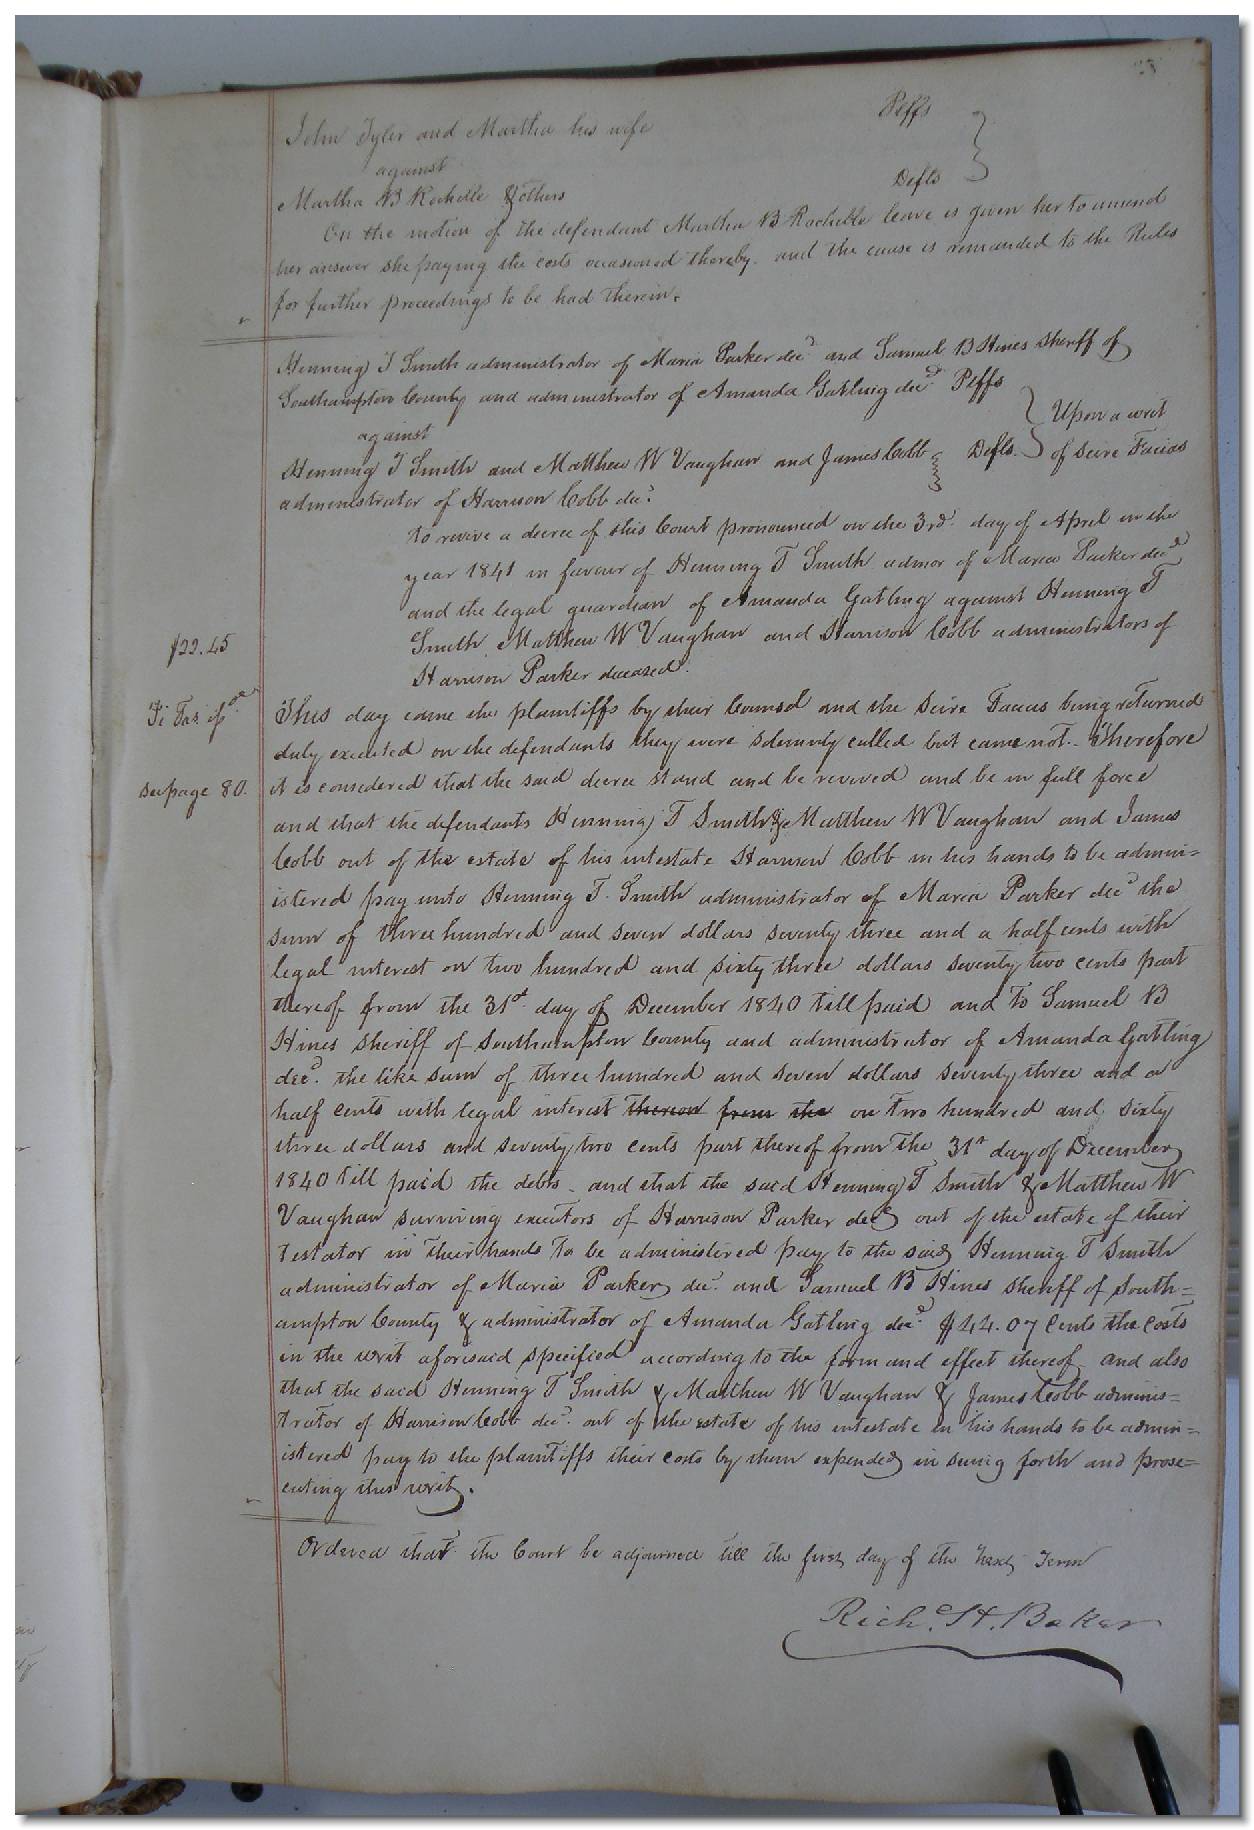 Plffs
John Tyler and Martha his wife
against
Defts
Martha B Rochelle & others
On the motion of the defendant Martha B Rochelle leave is given her to amend
her answer she paying the costs occasioned thereby. and the cause is remanded to the Rules
for further proceedings to be had therein.
Henning T Smith administrator of Maria Parker decd and Samuel B Hines Sheriff of
Southampton County and administrator of Amanda Gatling decd Plffs
against
Upon a writ
Henning T Smith and Matthew W Vaughan and James Cobb Defts. of Scire Facias
administrator of Harrison Cobb decd.
to revive a decree of this Court pronounced on the 3rd. day of April in the
year 1841 in favour of Henning T Smith admor of Maria Parker decd
and the legal guardian of Amanda Gatling against Henning T
Smith Matthew W Vaughan and Harrison Cobb administrators of
$22.45
Harrison Parker deceased.
Fi Fas
This day came the plaintiffs by their Counsel and the Scire Facias being returned
duly executed on the defendants they were solemnly called but came not. Therefore
see page 80.
it is considered that the said decree stand and be revived and be in full force
and that the defendants Henning T Smith & Matthew W Vaughan and James
Cobb out of the estate of his intestate Harrison Cobb in his hands to be admin=
istered pay unto Henning T. Smith administrator of Maria Parker decd the
sum of three hundred and seven dollars seventy three and a half cents with
legal interest on two hundred and sixty three dollars seventy two cents part
thereof from the 31st day of December 1840 till paid and to Samuel B
Hines Sheriff of Southampton County and administrator of Amanda Gatling
decd. the like sum of three hundred and seven dollars seventy three and a
half cents with legal interest thereon from the on two hundred and sixty
three dollars and seventy two cents part thereof from the 31st day of December
1840 till paid the debts - and that the said Henning T Smith & Matthew W
Vaughan surviving executors of Harrison Parker decd out of the estate of their
testator in their hands to be administered pay to the said Henning T Smith
administrator of Maria Parker decd. and Samuel B Hines Sheriff of South=
ampton County & administrator of Amanda Gatling decd. $44.07 Cents the Costs
in the writ aforesaid specified according to the form and effect thereof and also
that the said Henning T Smith & Matthew W Vaughan & James Cobb adminis=
trator of Harrison Cobb decd. out of the estate of his intestate in his hands to be admin=
istered pay to the plaintiffs their costs by them expended in suing forth and prose=
cuting this writ.
Ordered that the Court be adjourned till the first day of the next Term
Rich. H. Baker